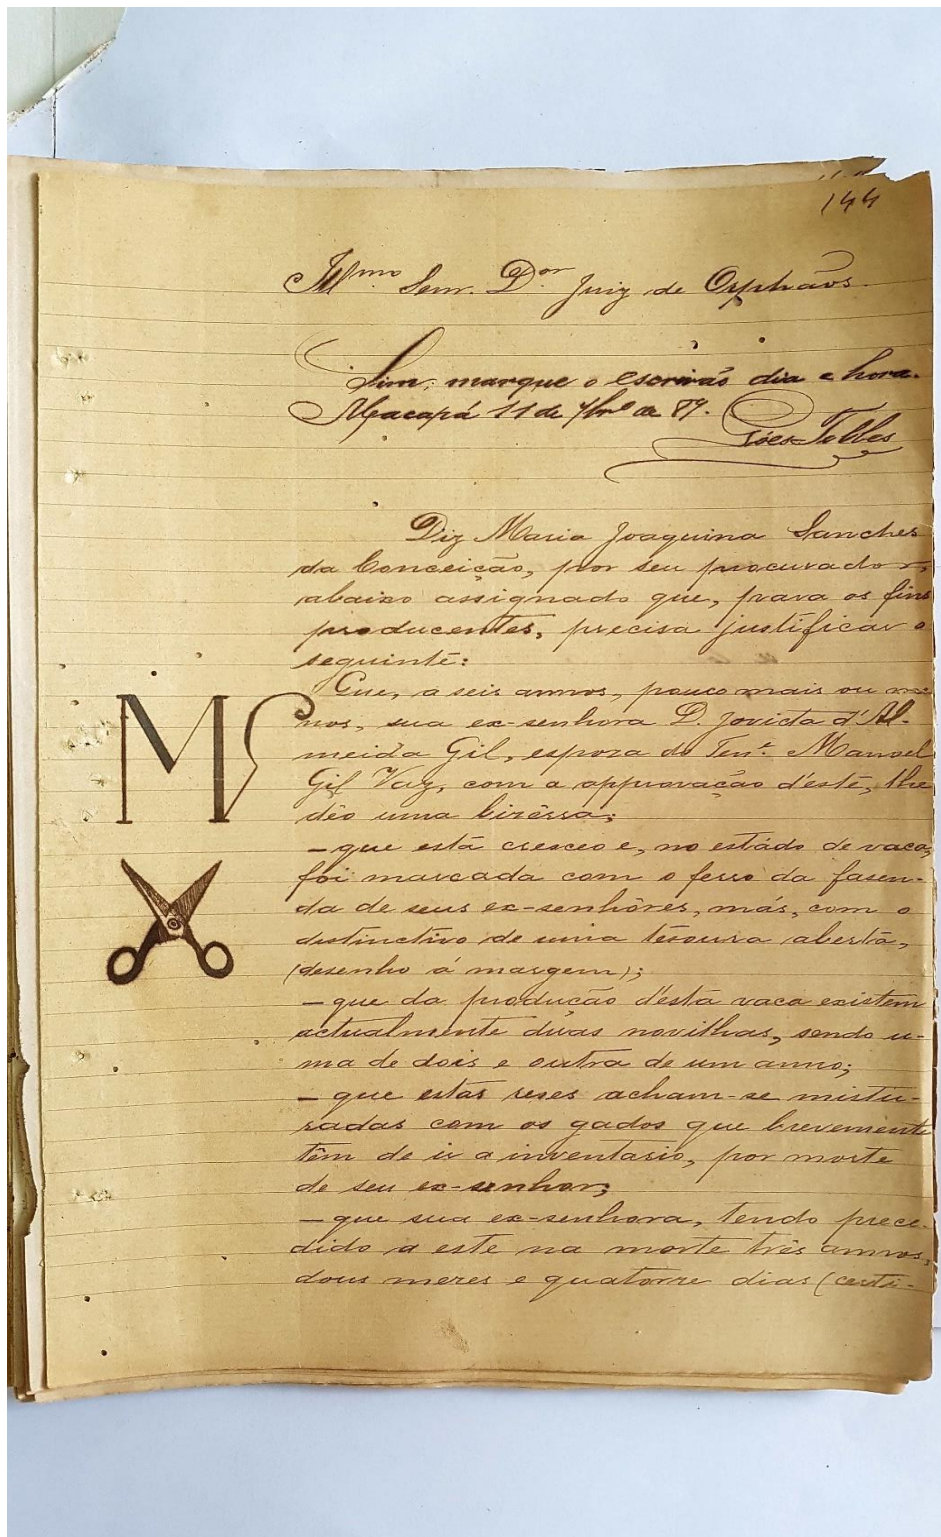 144
Illmo. Senr. Dor. Juiz de Orphãos.
Sim; marque o escrivão dia e hora.
Macapá 11 de 7bro de 89.
Góes Telles
Diz Maria Joaquina Sanches
da Conceição, por seu procurador,
abaixo assignado que, para os fins
producentes, precisa justificar o
seguinte:
Que, a seis annos, pouco mais ou me-
nos, sua ex-senhora D. Jovita d'Al-
meida Gil, espoza do Tene. Manoel
Gil Vaz, com a approvação d'este, lhe
déo uma bizerra;
– que esta cresceo e, no estádo de vaca,
foi marcada com o ferro da fasen-
da de seus ex-senhôres, más, com o
distinctivo de uma tesoura aberta,
(desenho á margem);
– que da producção d'esta vaca existem
actualmente duas novilhas, sendo u-
ma de dois e outra de um anno;
– que estas reses acham-se mistu-
radas com os gados que brevemente
têm de ir a inventario, por morte
de seu ex-senhor;
– que sua ex-senhora, tendo prece-
dido a este na morte três annos,
dous mezes e quatorze dias (certi-